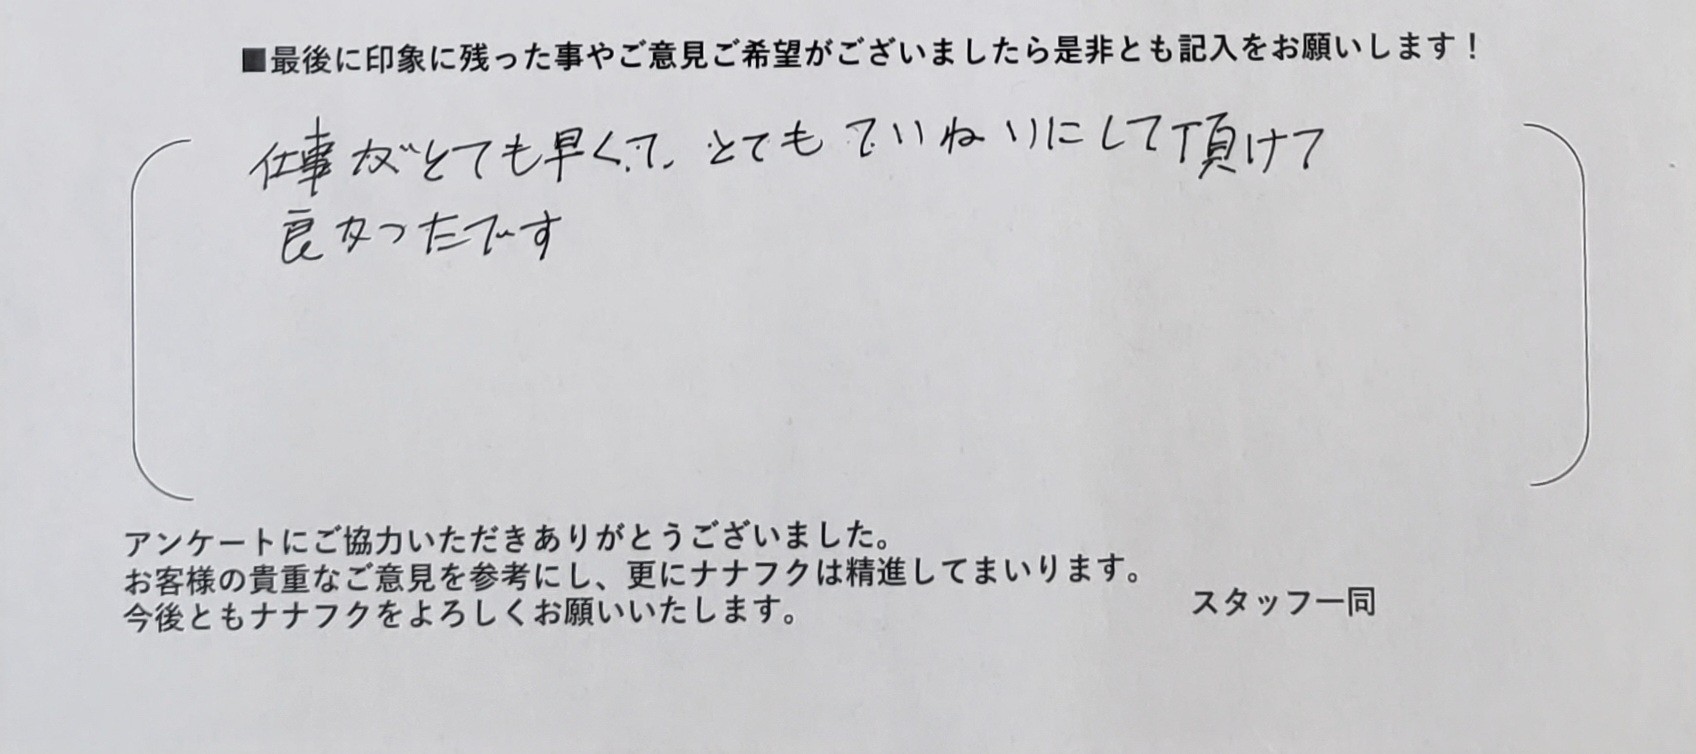 ■最後に印象に残った事やご意見ご希望がございましたら是非とも記入をお願いします！
仕事がとても早くて、とても ていねいにして頂けて
良かったです
アンケートにご協力いただきありがとうございました。
お客様の貴重なご意見を参考にし、更にナナフクは精進してまいります。
今後ともナナフクをよろしくお願いいたします。
スタッフ一同